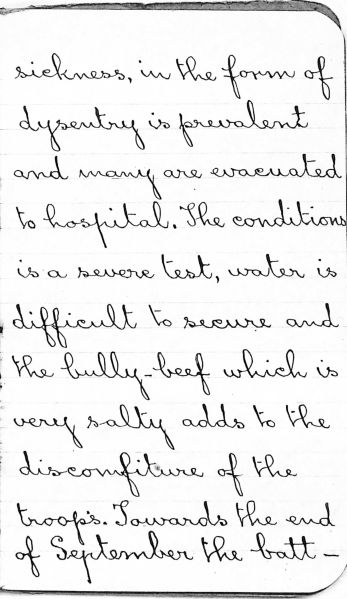 sickness, in the form of
dysentry is prevalent
and many are evacuated
to hospital. The conditions
is a severe test, water is
difficult to secure and
the bully-beef which is
very salty adds to the
discomfiture of the
troops. Towards the end
of September the batt-